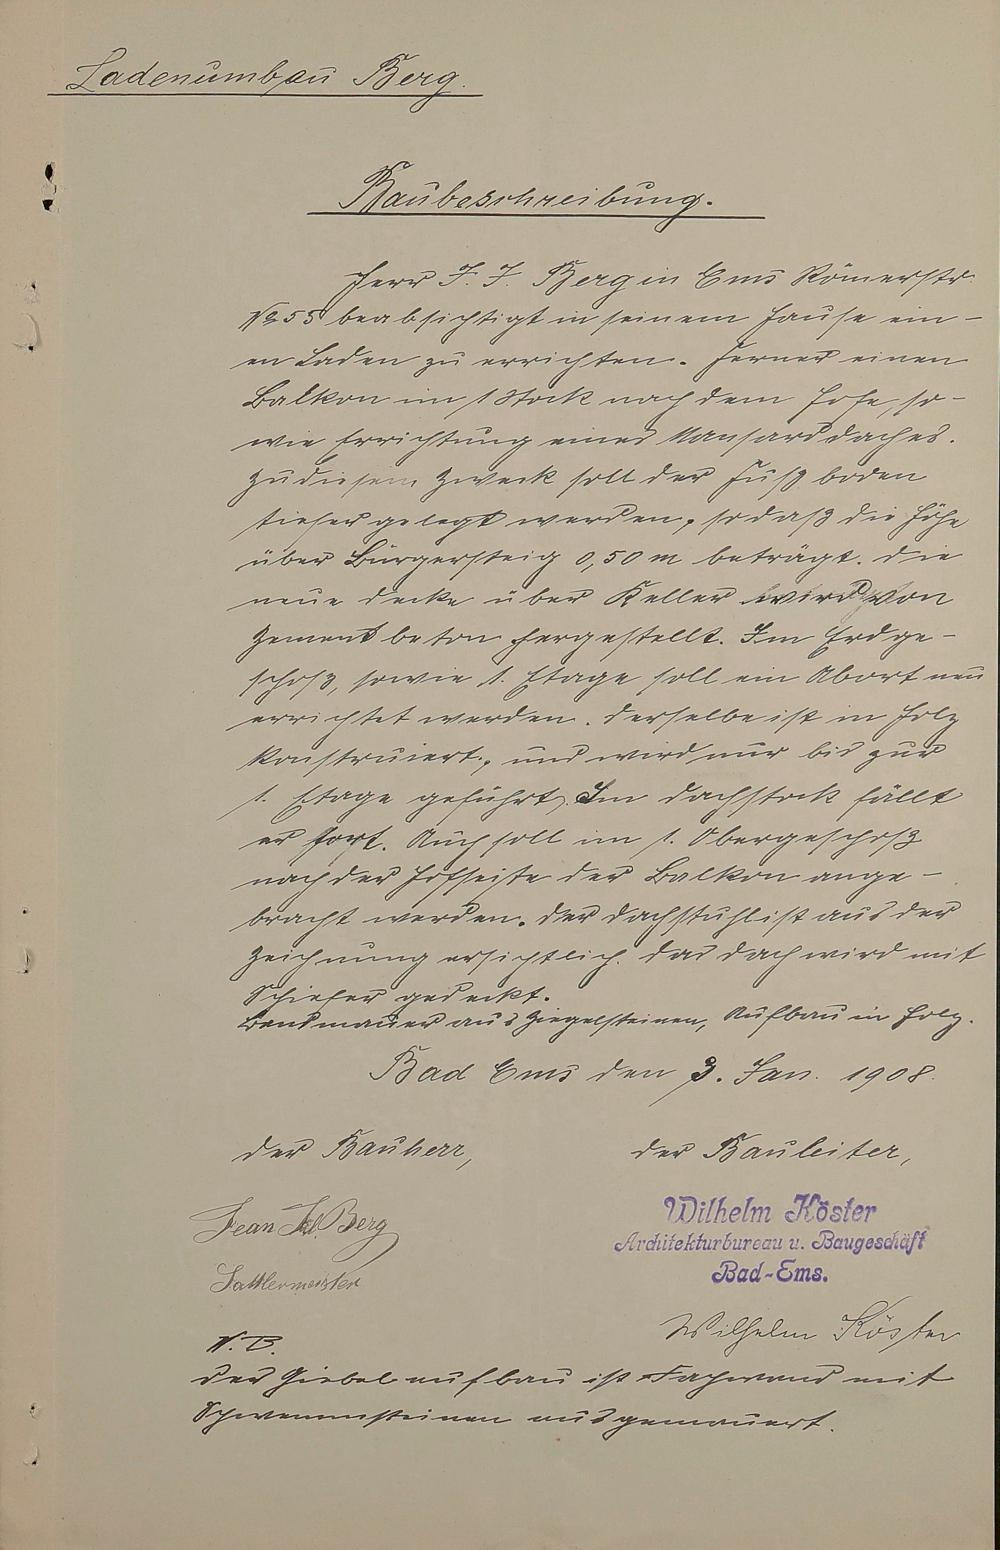 Ladenumbau Berg.
Baubeschreibung.
Herr J. J. Berg in Ems Römerstr.
No 55 beabsichtigt in seinem Hause ein-
en Laden zu errichten. Ferner einen
Balkon im 1 Stock nach dem Hofe, so-
wie Errichtung eines Mansarddaches.
Zu diesem Zweck soll der Fußboden
tiefer gelegt werden, sodaß die Höhe
über Bürgersteig 0,50 m beträgt. Die
neue Decke über Keller wird von
Zementbeton hergestellt. Im Erdge-
schoß, sowie 1. Etage soll ein Abort neu
errichtet werden. Derselbe ist in Holz
konstruiert, und wird nur bis zur
1. Etage geführt. Im Dachstock fällt
er fort. Auch soll im 1. Obergeschoß
nach der Hofseite der Balkon ange-
bracht werden. Der Dachstuhl ist aus der
Zeichnung ersichtlich. Das Dach wird mit
Schiefer gedeckt.
Brandmauer aus Ziegelsteinen, Aufbau in Holz.
Bad Ems den 3. Jan. 1908.
der Bauherr,
der Bauleiter,
Jean Berg
Wilhelm Köster
Architekturbureau u. Baugeschäft
Bad-Ems.
Sattlermeister
Wilhelm Köster
N.B.
Der Giebelaufbau ist Fachwand mit
Schwemmsteinen ausgemauert.